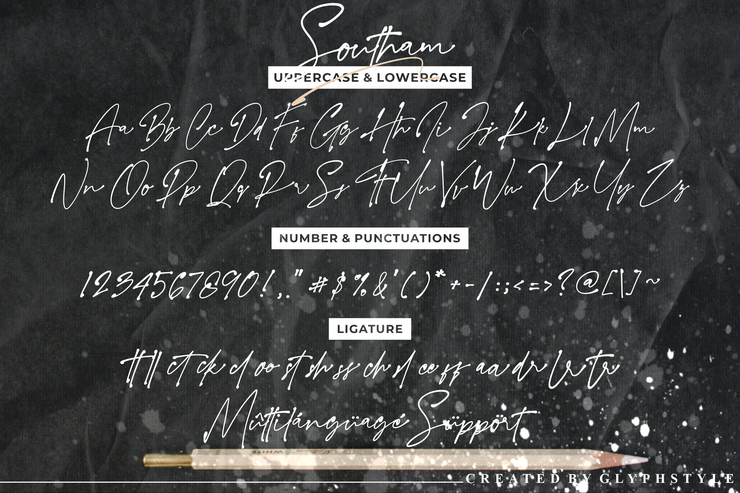 Southam
UPPERCASE & LOWERCASE
Aa Bb Cc Dd Ff Gg Hh Ii Jj Kk Ll Mm
Nn Oo Pp Qq Rr Ss Tt Uu Vv Ww Xx Yy Zz
NUMBER & PUNCTUATIONS
1234567890!,."#$%&'()*+-/:;<=>?@[\]~
LIGATURE
tt ll ct ck cl oo st sh ss ch rl ee ff aa dr lr tr
Mûltilángüagé Süppört
CREATED BY GLYPHSTYLE